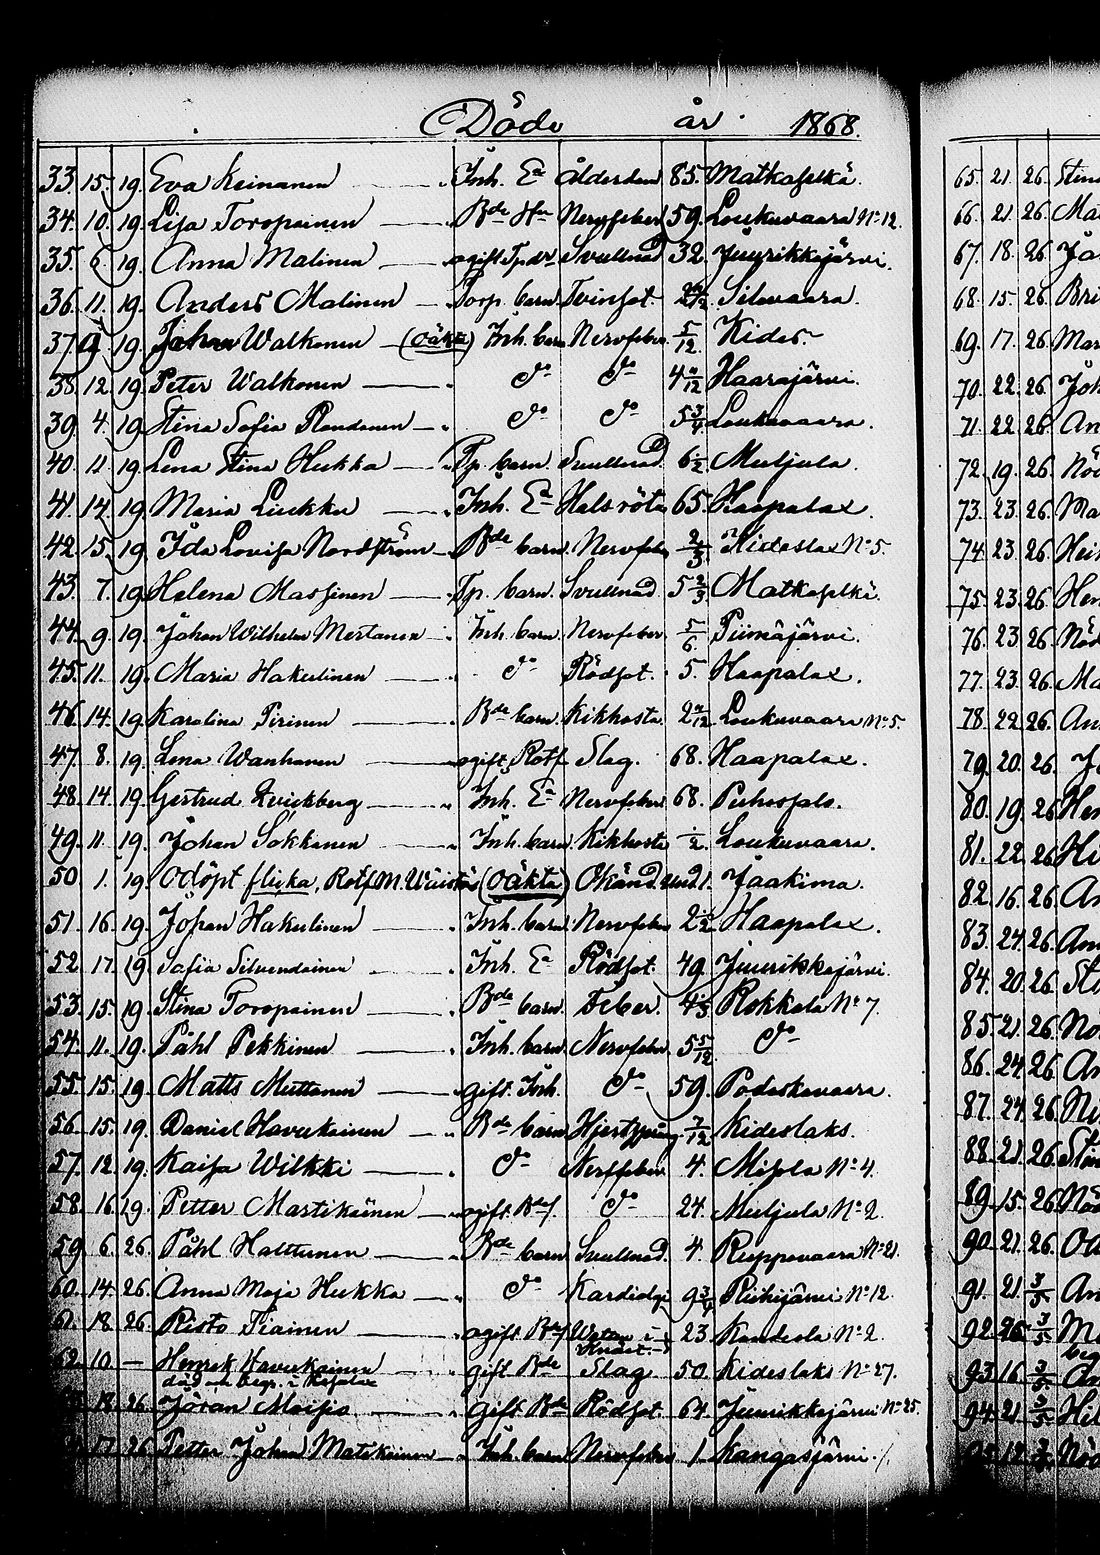 Döde år 1868.
33. 15. 19. Eva Keinanen Inh. Ea Ålderdom 85. Matkaselkä.
34. 10. 19. Lisa Toropainen Bde Hu Nervfeber 59. Loukuvaara No 12.
35. 6. 19. Anna Malinen ogift Tpdr Svullnad 32. Juurikkajärvi.
36. 11. 19. Anders Malinen Torp. barn Tvinsot Silovaara.
37. 9. 19. Johan Walkonen (Oäkta) Inh. barn Nervfeber 5/12. Kides.
38. 12. 19. Peter Walkonen do do 4 Haarajärvi.
39. 4. 19. Stina Sofia Rondanen do do 5 3/4 Loukuvaara.
40. 11. 19. Lena Stina Hukka Tp. barn Svullnad 6 1/2 Muljula.
41. 14. 19. Maria Liukku Inh. Ea Halsröta 65. Haapalax.
42. 15. 19. Ida Lovisa Nordström Bde barn Nervfeb. 2/3 Kideslax No 5.
43. 7. 19. Helena Massinen Tp. barn. Svullnad 5 2/3 Matkaselkä.
44. 9. 19. Johan Wilhelm Mertanen Inh. barn. Nervfeber 5/6. Piimäjärvi.
45. 11. 19. Maria Hakulinen do Rödsot 5. Haapalax.
46. 14. 19. Karolina Pirinen Bde barn Kikhosta 2 Loukuvaara No 5.
47. 8. 19. Lena Wanhanen ogift, Rotf. Slag. 68. Haapalax.
48. 14. 19. Gertrud Quickberg Inh. Ea Nervfeber 68. Puhossalo.
49. 11. 19. Johan Sokkanen Inh. barn Kikhosta 1/2. Loukuvaara.
50 1. 19. Odöpt flicka, Rotf M. (Oäkta) Okänd und. 1. Jaakima.
51. 16. 19. Johan Hakulinen Inh. barn Nervfeber 2 1/2 Haapalax.
52. 17. 19. Sofia Silvendoinen Inh. Ea Rödsot 49. Juurikkajärvi.
53. 15. 19. Stina Toropainen Bde barn. Feber. 4 Rokkala No 7.
54. 11. 19. Påhl Pekkinen Inh. barn Nervfeber 5 5/12 do
55. 15. 19. Matts Muttonen gift. Inh. do 59. Podoskavaara.
56. 15. 19. Daniel Havukainen Bde barn 7/12 Kideslaks.
57. 12. 19. Kaisa Wilkki do Nervfeber 4. Misola No 4.
58. 16. 19 Petter Martikainen ogift. Bdes. do 24. Muljula No 2.
59. 6. 26. Påhl Halttunen Bde barn Svullnad. 4. Ruppovaara No 21.
60. 14. 26. Anna Maja Hukka do Kardialgi 9 3/4 Riihijärvi No 12.
61. 18 26. Risto Tiainen ogift Bdes Watten i 23. Kandola No 2.
62. 10. — Henrik Havukainen gift Bde Slag 50. Kideslaks No 27.
död och begr. i
18. 26. Jöran Maisio gift Bde Rödsot 64. Juurikkajärvi No 25.
17. 26. Petter Johan Matikainen Inh. barn Nervfeber 1 Kangasjärvi./.
65. 21. 26.
66. 21. 26.
67. 18. 26.
68. 15. 26.
69. 17. 26.
70. 22. 26.
71. 22. 26.
72. 19. 26.
73. 23. 26.
74. 23. 26.
75. 23. 26.
76. 23. 26.
77. 23. 26.
78. 22. 26.
79. 20. 26.
80. 19. 26.
81. 22. 26.
82. 16. 26.
83. 24. 26.
84. 20. 26.
85. 21. 26.
86. 24. 26.
87. 24. 26.
88. 21. 26.
89. 15. 26.
90. 21. 26.
91. 21. 3/5
92. 26. 3/5
93. 16. 3/5
94. 21. 3/5